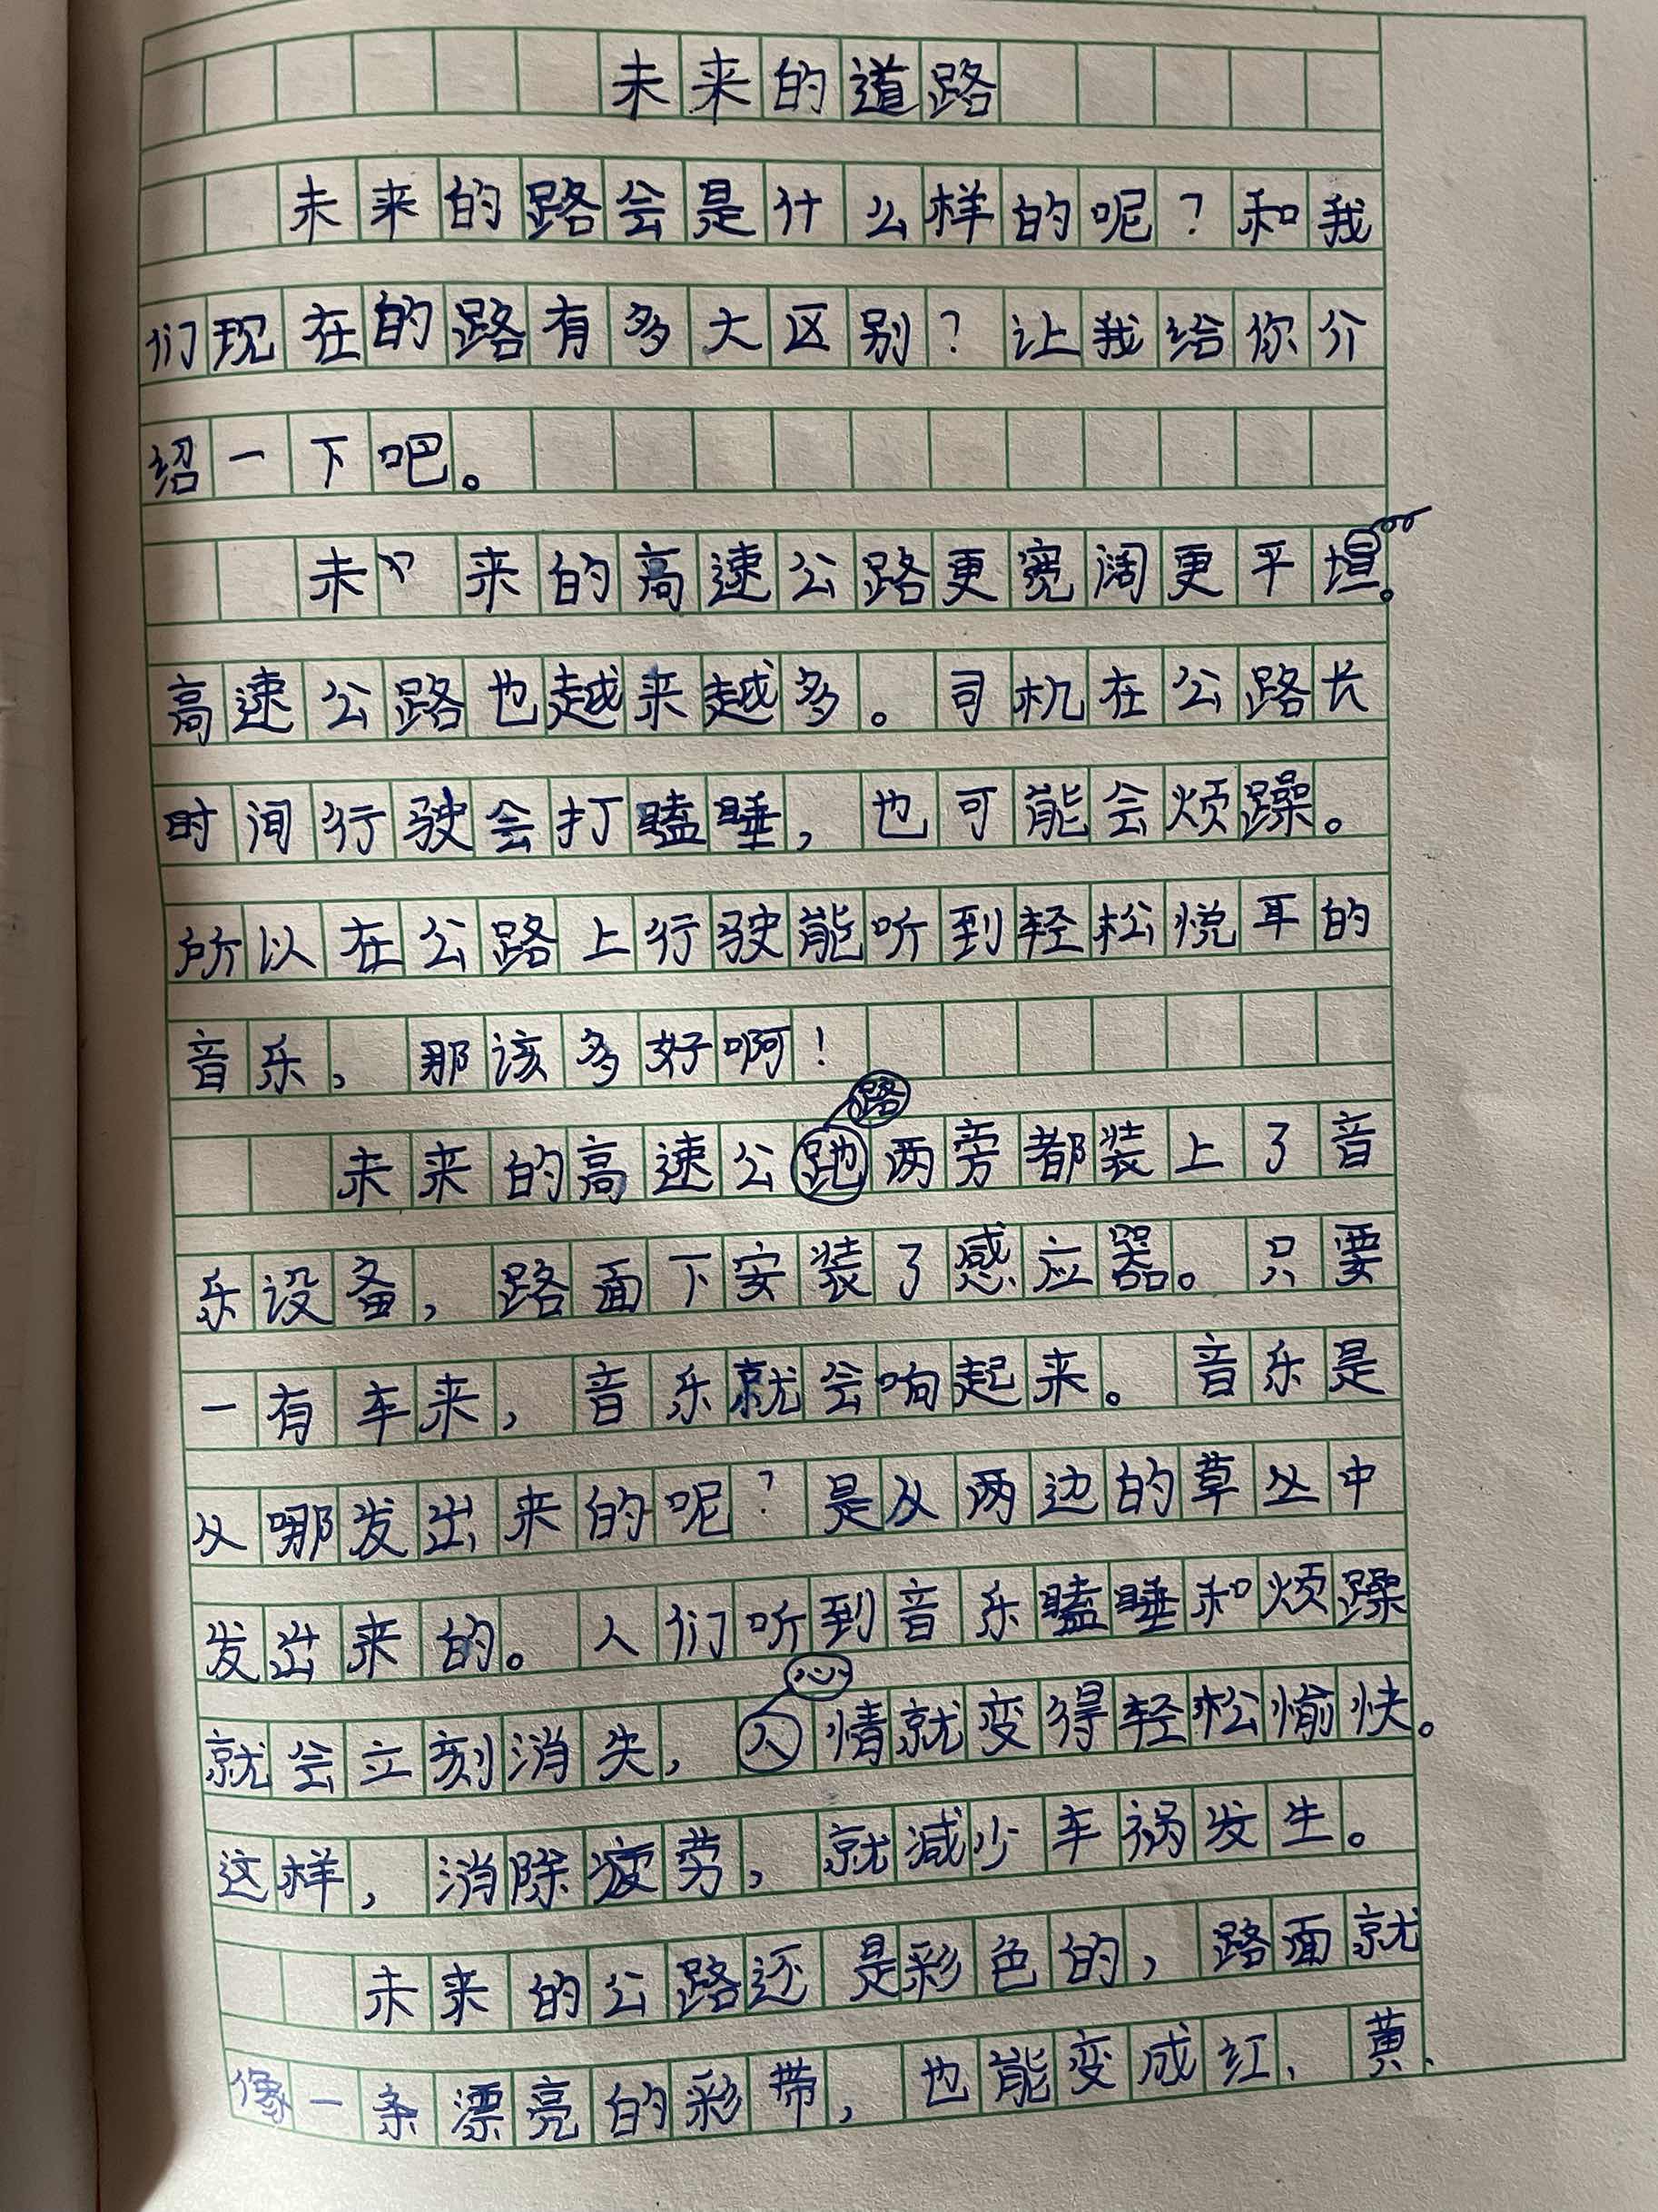 未来的道路
未来的路会是什么样的呢？和我
们现在的路有多大区别？让我给你介
绍一下吧。
未来的高速公路更宽阔更平坦。
高速公路也越来越多。司机在公路长
时间行驶会打瞌睡，也可能会烦躁。
所以在公路上行驶能听到轻松悦耳的
音乐，那该多好啊！
路
未来的高速公跑两旁都装上了音
乐设备，路面下安装了感应器。只要
一有车来，音乐就会响起来。音乐是
从哪发出来的呢？是从两边的草丛中
发出来的。人们听到音乐瞌睡和烦躁
心
就会立刻消失，人情就变得轻松愉快。
这样，消除疲劳，就减少车祸发生。
未来的公路还是彩色的，路面就
像一条漂亮的彩带，也能变成红、黄、